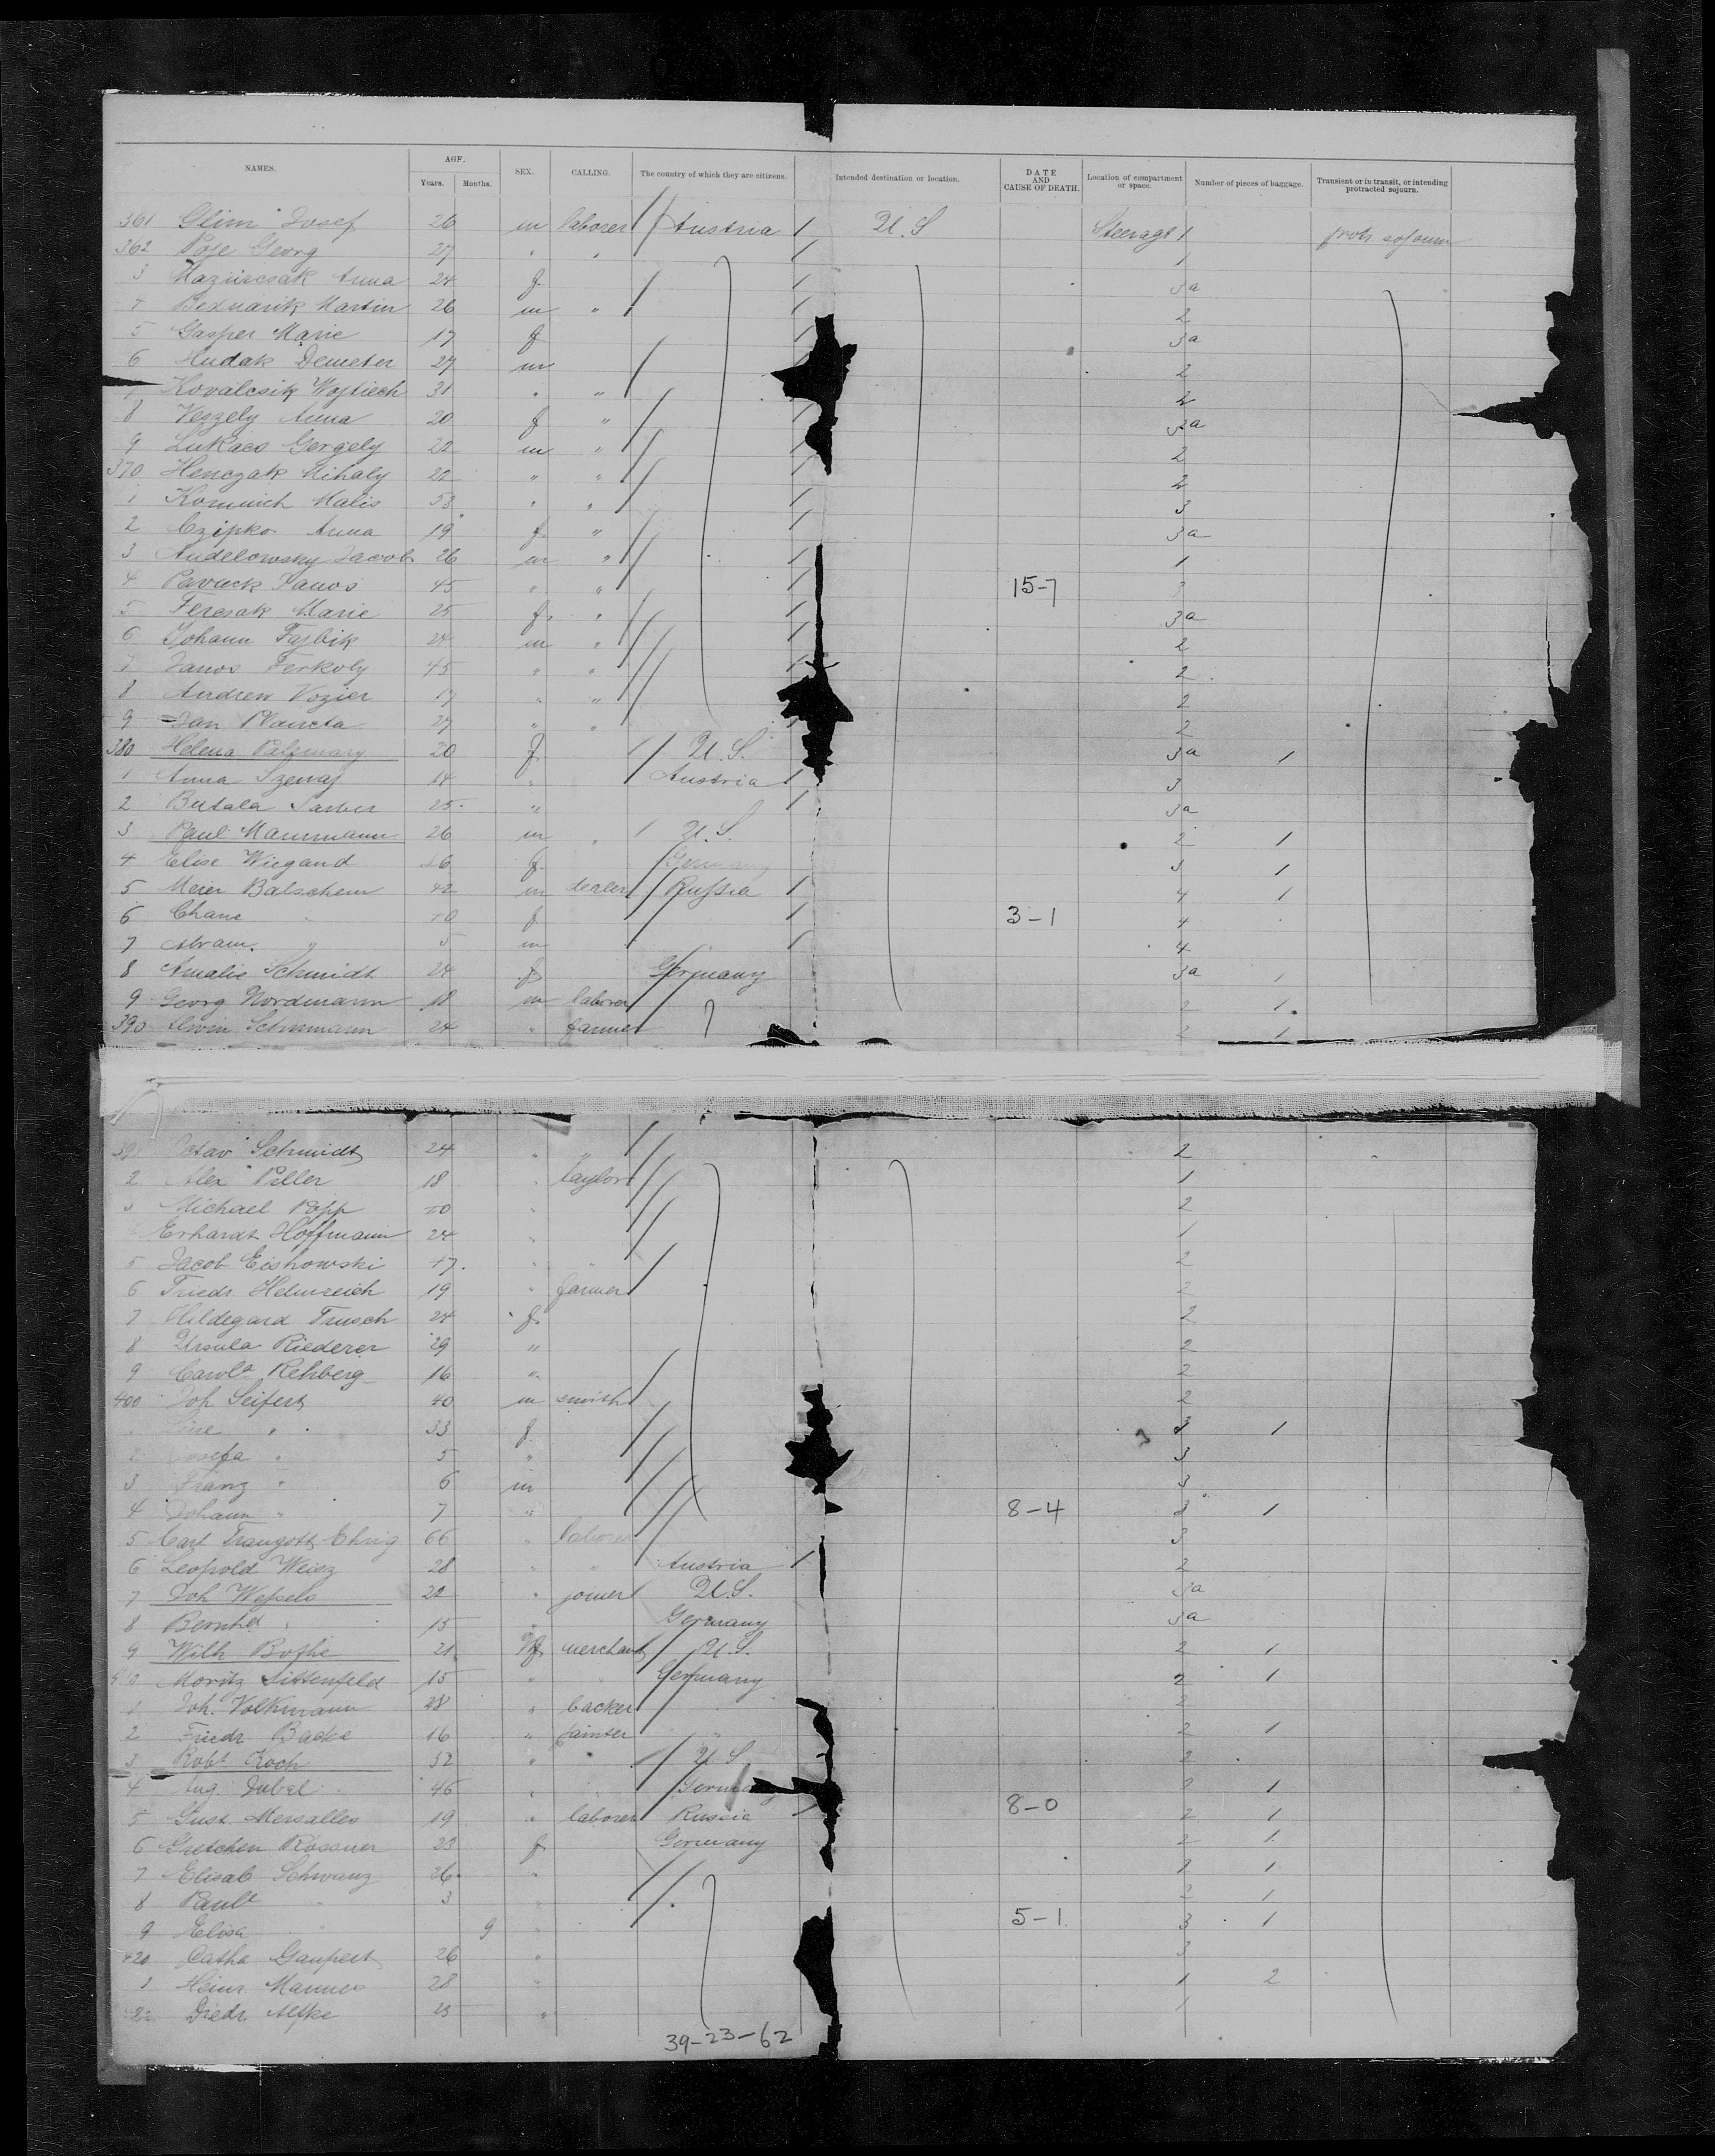 NAMES. AGE. Years. Months. SEX. CALLING. The country of which they are citizens. Intended destination or location. DATE AND CAUSE OF DEATH. Location of compartment or space. Number of pieces of baggage. Transient or in transit, or intending protracted sojourn.
361 Glim Josef 26 m laborer Austria U.S Steerage 1 protr sojourn
362 Georg 27 " " 1
3 Mazurcsak Anna 24 f 3a
4 Bednarik Martin 26 m " 2
5 Gasper Marie 17 f 3a
6 Hudak Demeter 27 m 2
7 Kovalcsik Wojtiech 31 " " 2
8 Veszely Anna 20 f " 3a
9 Lukacs Gergely 22 m " 2
370 Henczak Mihaly 22 " " 2
1 Komnich Malis 53 " " 3
2 Czipko Anna 19 f " 3a
3 Andelowsky Jacob 26 m " 1
4 Pavuck Janos 45 " " 15-7 3
5 Feresak Marie 25 f " 3a
6 Johann Fajbik 24 m " 2
7 Janos Ferkoly 45 " " 2
8 Andrew Vozier 17 " " 2
9 Jan Plancta 27 " " 2
380 Helena 20 f U.S. 3a 1
1 Anna 14 " Austria 3
2 Butala 25 " 3a
3 Paul Maurmann 26 m " U.S. 2 1
4 Elise Wiegand 26 f Germany 3 1
5 Meier Balschem 42 m dealer Russia 4 1
6 Chane " f 3-1 4
7 Abram " 5 m 4
8 Amalie Schmidt 24 f Germany 3a 1
9 Georg Nordmann 18 m laborer 2 1
390 Schurmann 24 " farmer 2 1
391 Schmidt 24 " " 2
2 Alex Piller 18 " taylor 1
3 Michael Popp " 2
Erhardt Hoffmann 24 " 1
5 Jacob Eishowski 17 " 2
6 Friedr Helmreich 19 " farmer 2
7 Hildegard Trusch 24 f 2
8 Ursula Riederer 29 " 2
9 Rehberg 16 " 2
400 Joh Seifert 40 m smith 2
Line " 33 f 3 1
Josefa " 5 " 3
3 Franz " 6 m 3
4 Johann " 7 " 8-4 3 1
5 Carl Traugott Ehrig 66 " laborer 3
6 Leopold Weisz 28 " " Austria 2
7 Joh Wessels 22 " joiner U.S. 3a
8 Bernhd " 15 " Germany 3a
9 Wilh Bothe 21 merchant U.S. 2 1
410 Moritz Sittenfeld 15 " Germany 2 1
1 Joh. Volkmann 28 " backer 2
2 Friedr Backe 16 " " 2 1
3 Robt Koch 32 " U.S 2
4 Aug. 46 " Germany 2 1
5 Gust. Mersalles 19 " laborer Russia 8-0 2 1
6 Gretchen Rossner 23 f Germany 2 1
7 Elisab Schwanz 26 " 1
8 Paule " 3 " 2 1
9 Elisa 9 " 5-1 3 1
420 Catha Gaupert 26 " 3
1 Heinr. Mannes 28 " 1 2
22 Diedr. Alfke 23 " 1
39-23-62